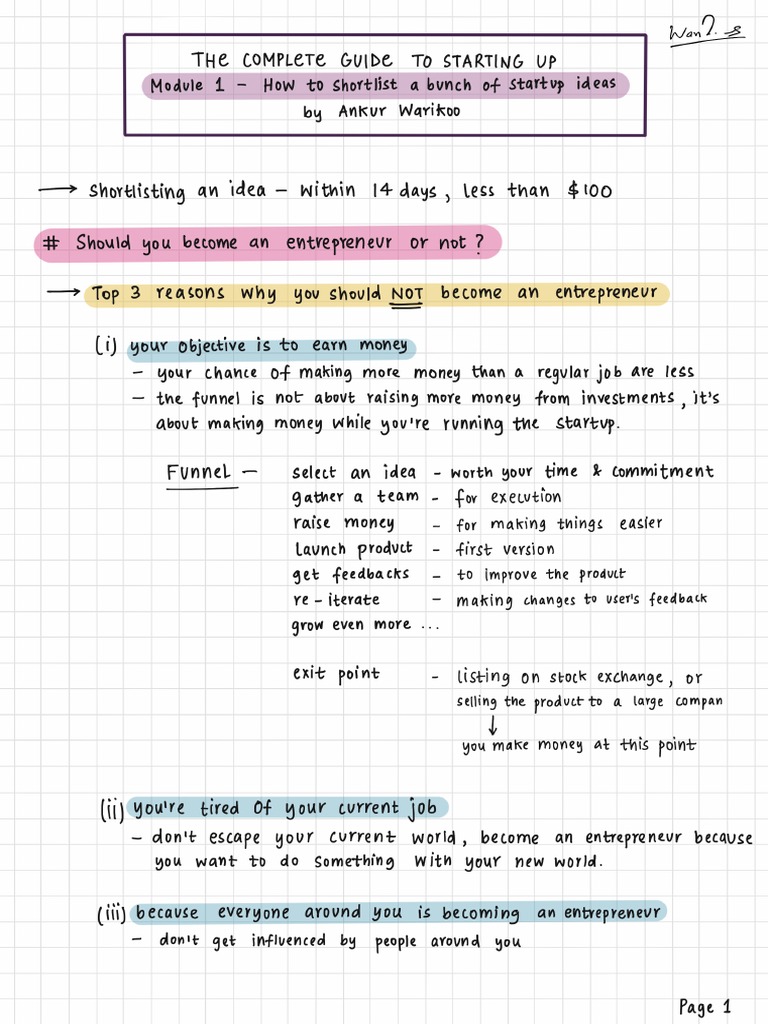 THE COMPLETE GUIDE TO STARTING UP
Module 1 - How to shortlist a bunch of startup ideas
by Ankur Warikoo
→ Shortlisting an idea - within 14 days, less than $100
# Should you become an entrepreneur or not?
→ Top 3 reasons why you should NOT become an entrepreneur
(i) your objective is to earn money
- your chance of making more money than a regular job are less
- the funnel is not about raising more money from investments, it's
about making money while you're running the startup.
Funnel - select an idea - worth your time & commitment
gather a team - for execution
raise money - for making things easier
launch product - first version
get feedbacks - to improve the product
re-iterate - making changes to user's feedback
grow even more ...
exit point - listing on stock exchange, or
selling the product to a large compan
↓
you make money at this point
(ii) you're tired of your current job
- don't escape your current world, become an entrepreneur because
you want to do something with your new world.
(iii) because everyone around you is becoming an entrepreneur
- don't get influenced by people around you
Page 1